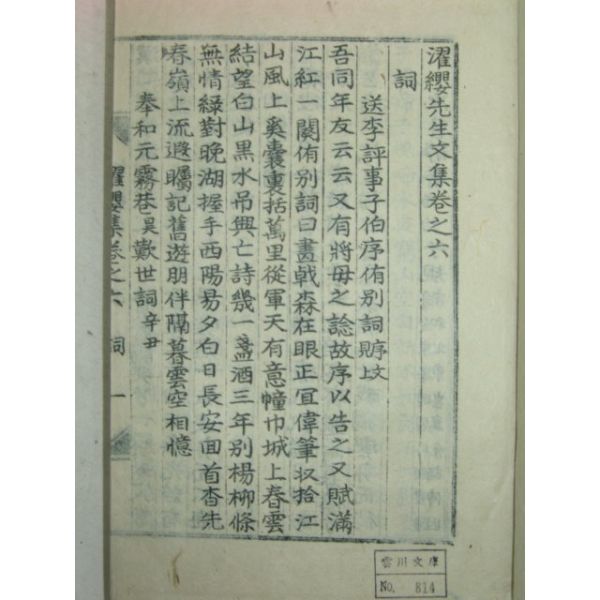 濯纓先生文集卷之六
詞
送李評事子伯序侑別詞
吾同年友云云又有將母之諗故序以告之又賦滿
江紅一闋侑別詞曰畫戟森在眼正冝偉筆收拾江
山風上奚囊裏括萬里從軍天有意幢巾城上春雲
結望白山黑水吊興亡詩幾一盞酒三年別楊柳條
無情緑對晚湖握手西陽易夕白日長安回首杳先
春嶺上流遐矚記舊遊朋伴隔暮雲空相憶
奉和元霧巷昊歎世詞辛丑
濯纓集卷之六 詞 一
雲川文庫
No. 814